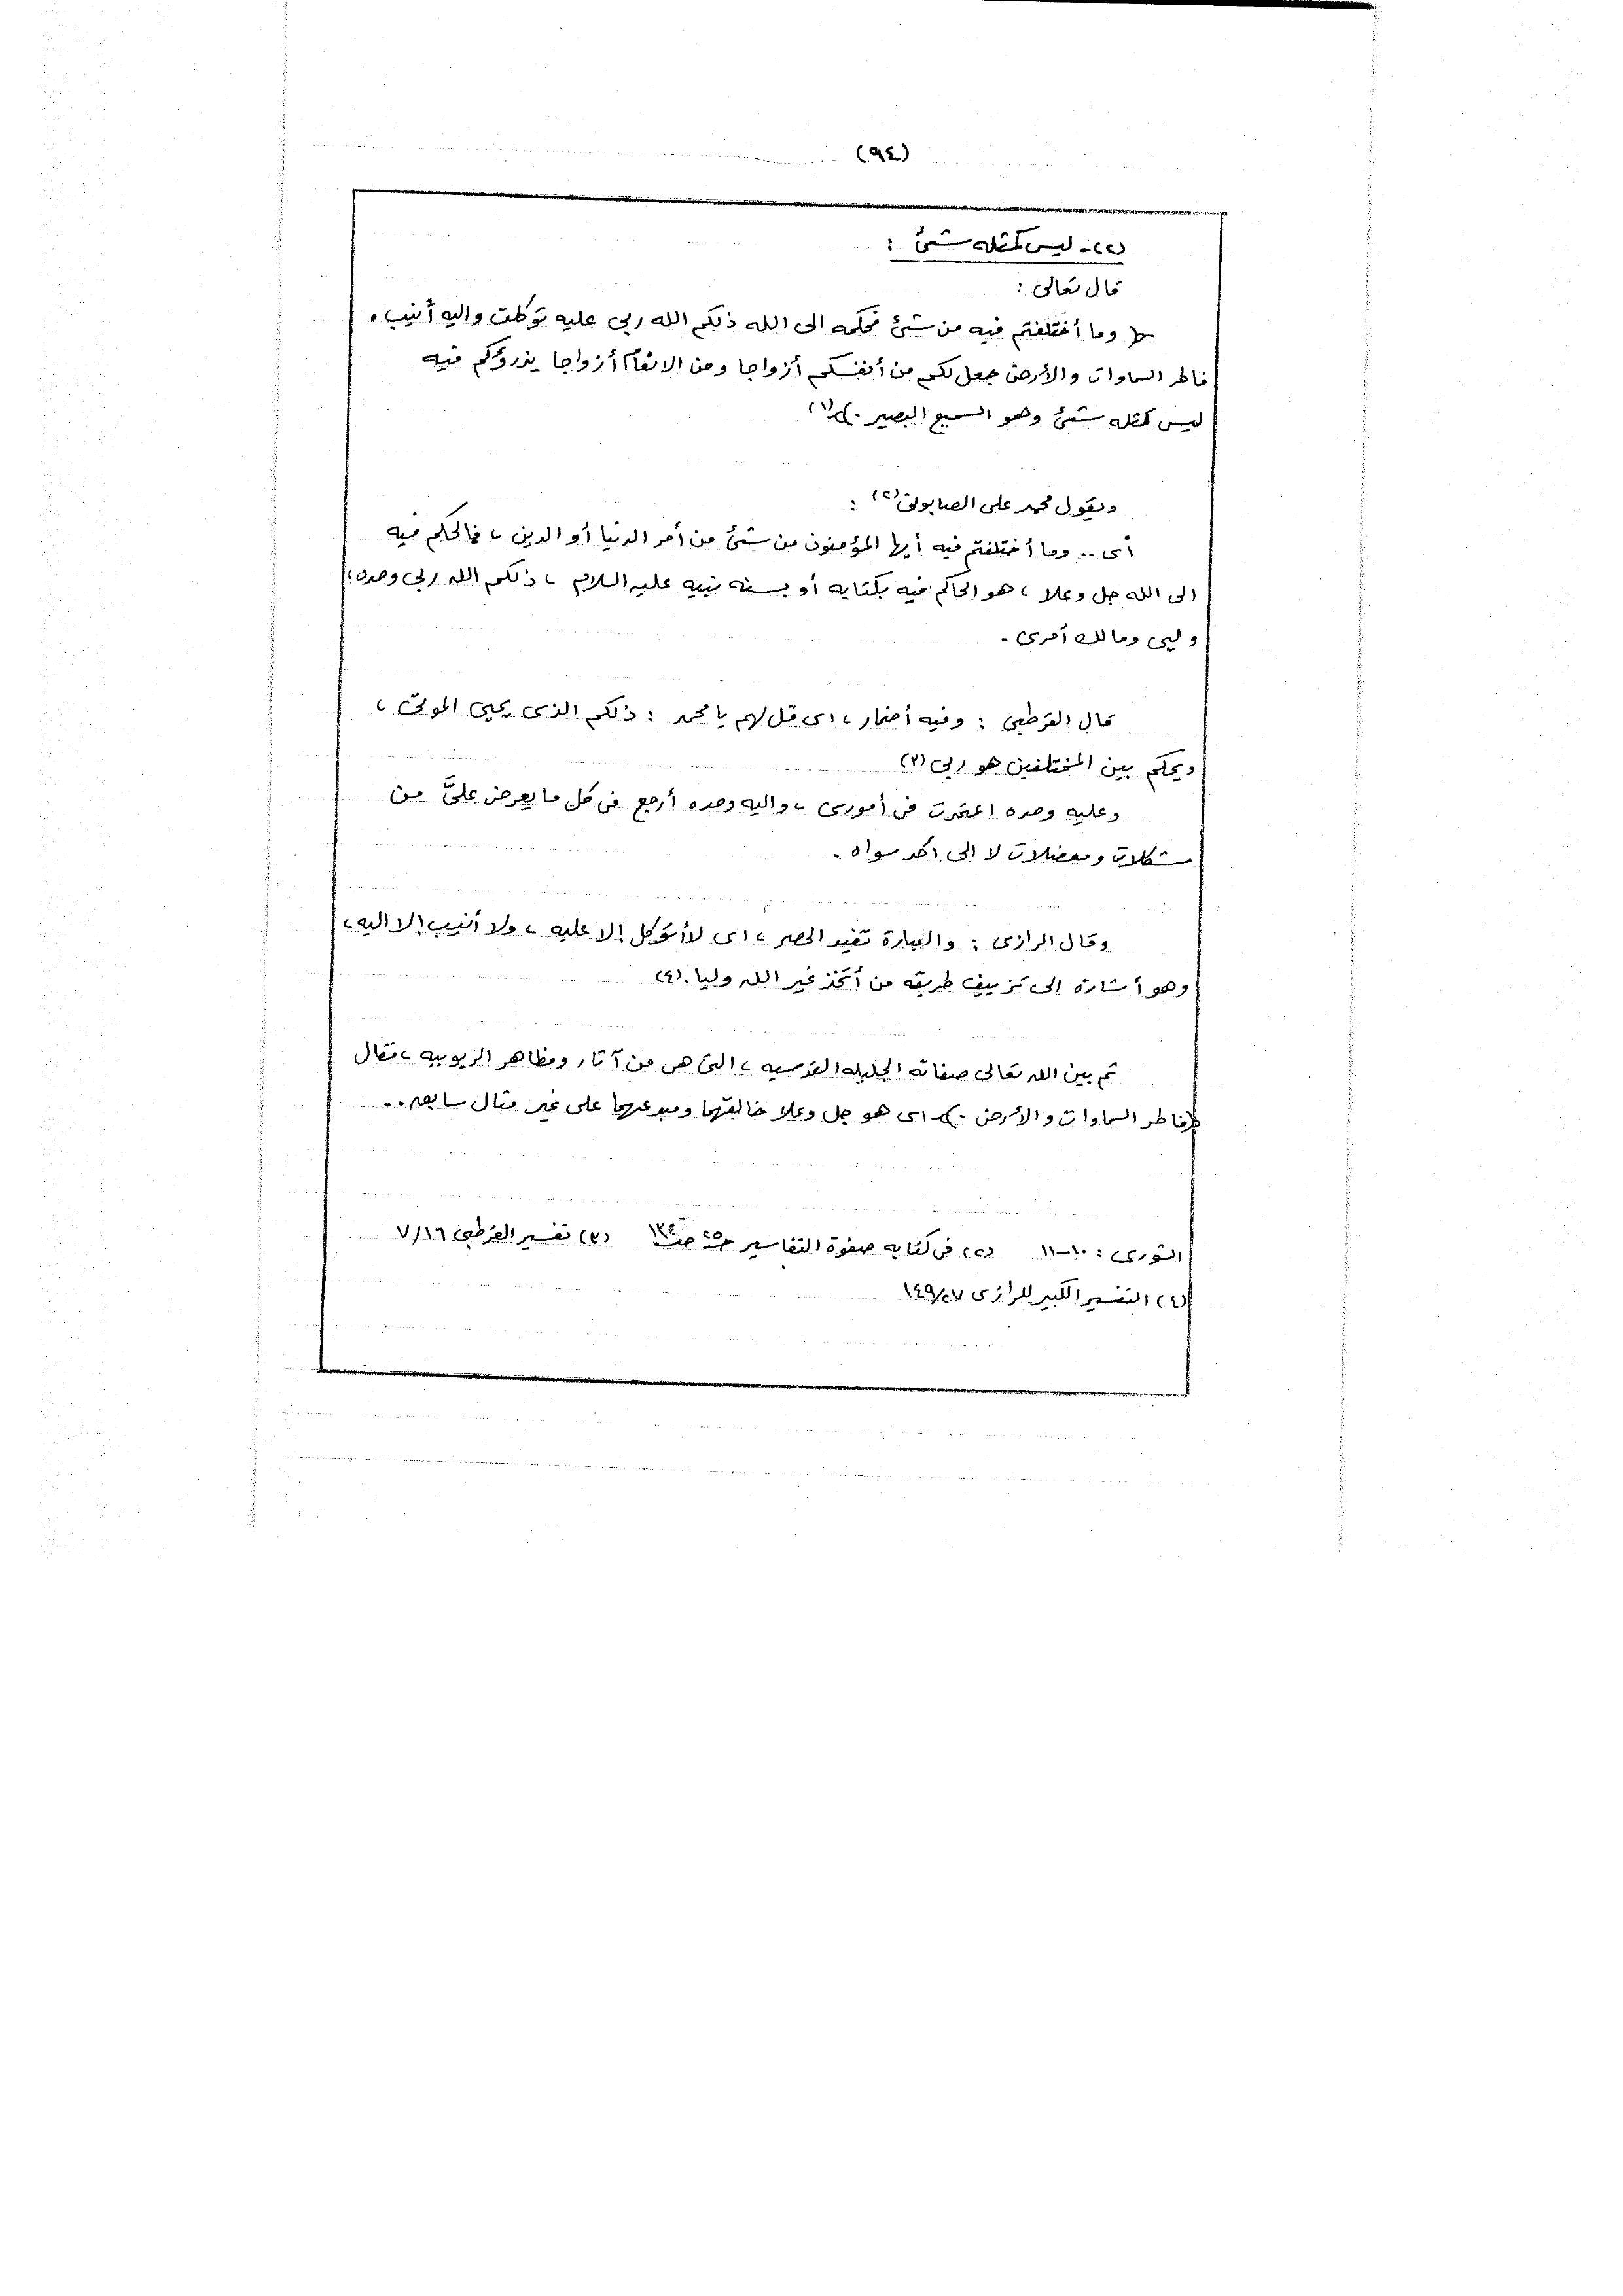 (٩٤)
(٢)- ليس كمثله شئ :
قال تعالى :
﴿ وما أختلفتم فيه من شئ فحكمه الى الله ذلكم الله ربى عليه توكلت واليه أنيب .
فاطر السماوات والأرض جعل لكم من أنفسكم أزواجا ومن الانعام أزواجا يذرؤكم فيه
ليس كمثله شئ وهو السميع البصير . ﴾(١)
ويقول محمد على الصابونى(٢) :
أى .. وما أختلفتم فيه أيها المؤمنون من شئ من أمر الدنيا أو الدين ، فالحكم فيه
الى الله جل وعلا ، هو الحاكم فيه بكتابه أو بسنه نبيه عليه السلام ، ذلكم الله ربى وحده ،
وليى ومالك أمرى .
قال القرطبى : وفيه أضمار ، اى قل لهم يا محمد : ذلكم الذى يحيى الموتى ،
ويحكم بين المختلفين هو ربى (٣)
وعليه وحده اعتمدت فى أمورى ، واليه وحده أرجع فى كل ما يعرض علىَّ من
مشكلات ومعضلات لا الى أحد سواه .
وقال الرازى : والعبارة تفيد الحصر ، اى لا أتوكل إلا عليه ، ولا أنيب إلا اليه ،
وهو أشارة إلى تزييف طريقه من أتخذ غير الله وليا . (٤)
ثم بين الله تعالى صفاته الجليله القدسيه ، التى هى من آثار ومظاهر الربوبيه ، فقال
﴿فاطر السماوات والأرض . ﴾ اى هو جل وعلا خالقهما ومبدعهما على غير مثال سابق ..
الشورى : ١٠-١١ (٢) فى كتابه صفوة التفاسير ح٢٥ ص١٣٤ (٣) تفسير القرطبى ٧/١٦
(٤) التفسير الكبير للرازى ١٤٩/٢٧